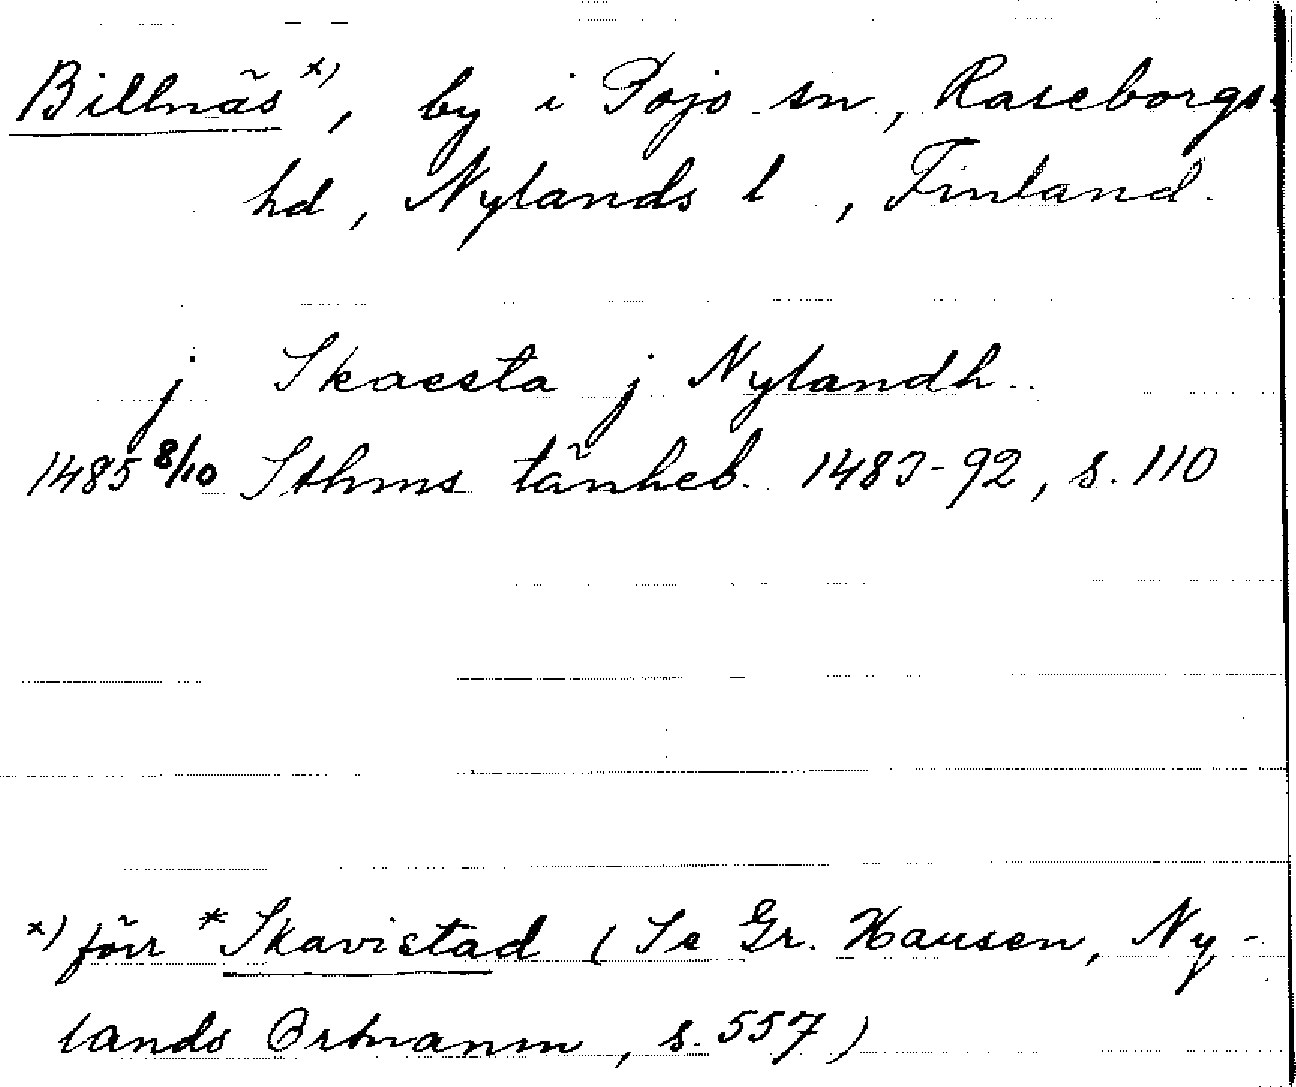 Billnäs x), by i Pojo sn, Raseborgs
hd, Nylands l, Finland.
j Skaesta j Nylandh.
1485 8/10 Sthms tänkeb. 1483-92, s. 110
x) förr *Skavistad (Se Gr. Hausen, Ny-
lands Ortnamn, s. 557)